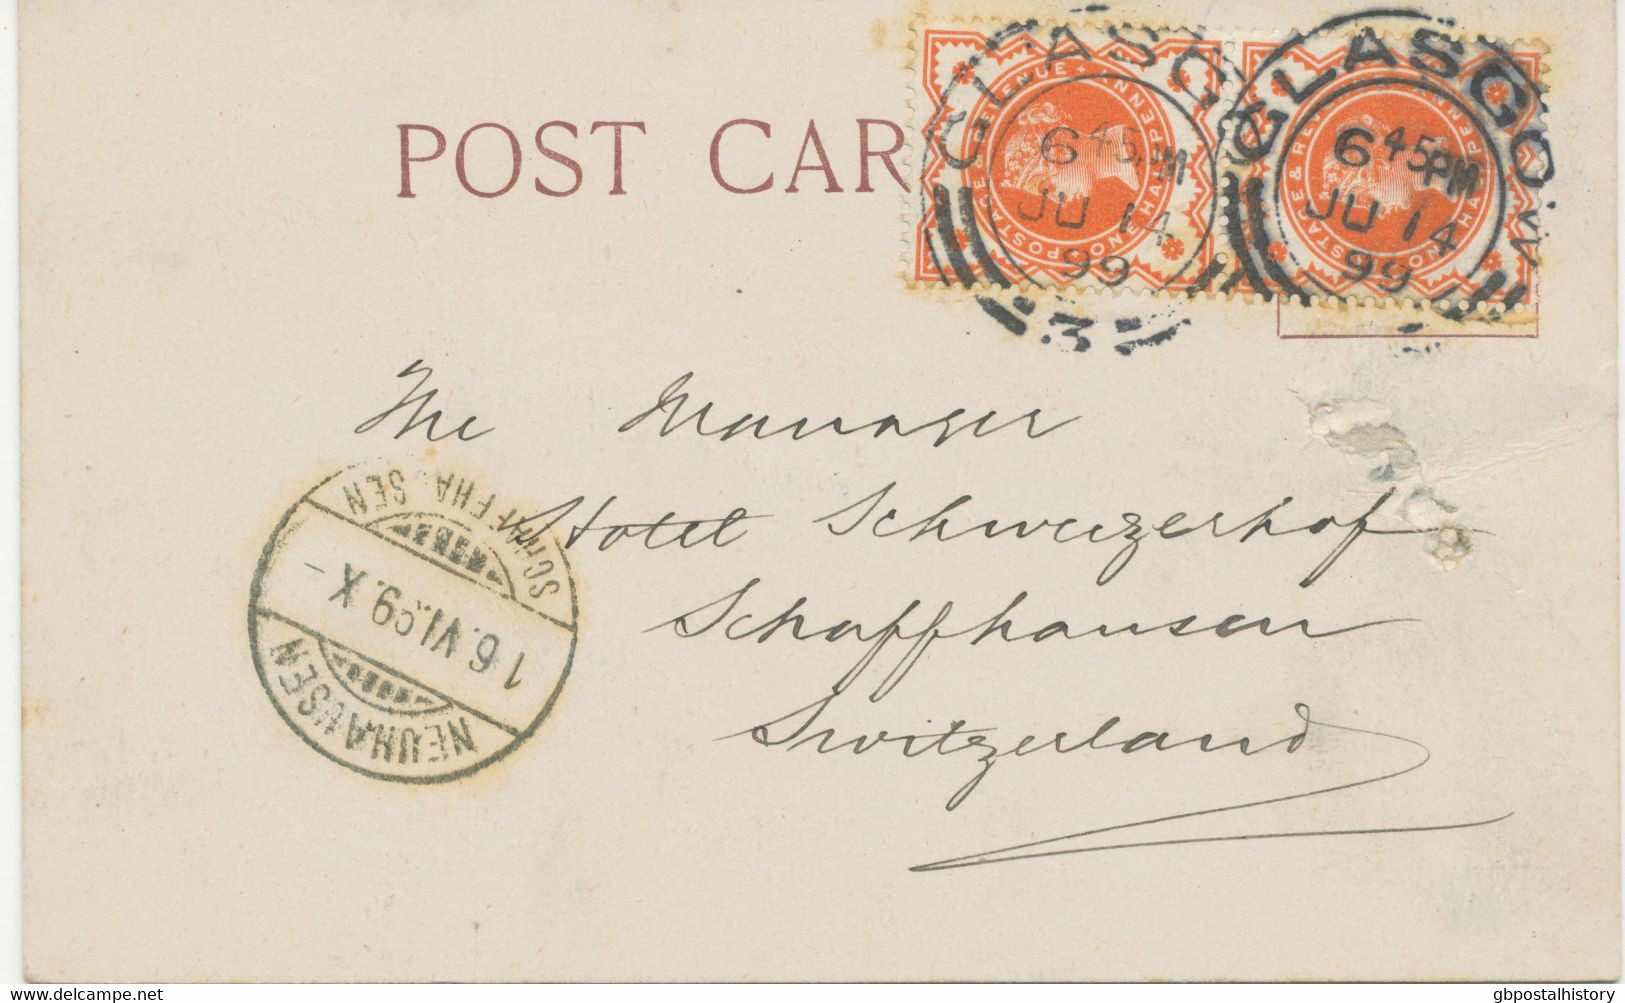 POST CAR
POSTAGE & REVENUE
ONE HALFPENNY
POSTAGE & REV
ONE HALFPENNY
GLASG
6 45 PM
JU 14
99
3
GLASGOW
6 45 PM
JU 14
99
The Manager
Hotel Schweizerhof
Schaffhausen
Switzerland
NEUHAUSEN
16.VI.99.X-
SCHAFFHAUSEN
© gbpostalhistory
gbpostalhistory